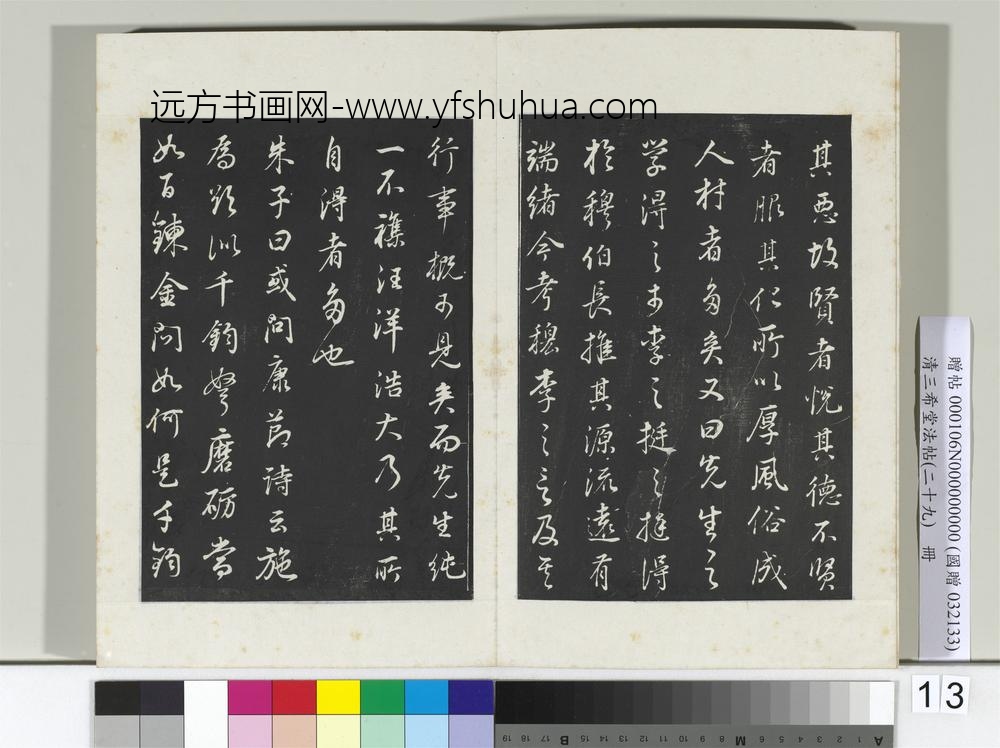 远方书画网-www.yfshuhua.com
其惡故賢者悅其德不賢
者服其化所以厚風俗成
人材者多矣又曰先生之
学得之于李之挺之挺得
於穆伯長推其源流遠有
端緒今考穆李之言及其
行事概可見矣而先生純
一不雜汪洋浩大乃其所
自得者多也
朱子曰或問康節詩云施
為欲似千鈞弩磨礪當
如百鍊金問如何是千鈞
贈帖 000106N000000000 (國贈 032133)
清三希堂法帖(二十九) 冊
13
A 1 2 3 4 5 6 M 8 9 10 11 12 13 14 15 B 17 18 19